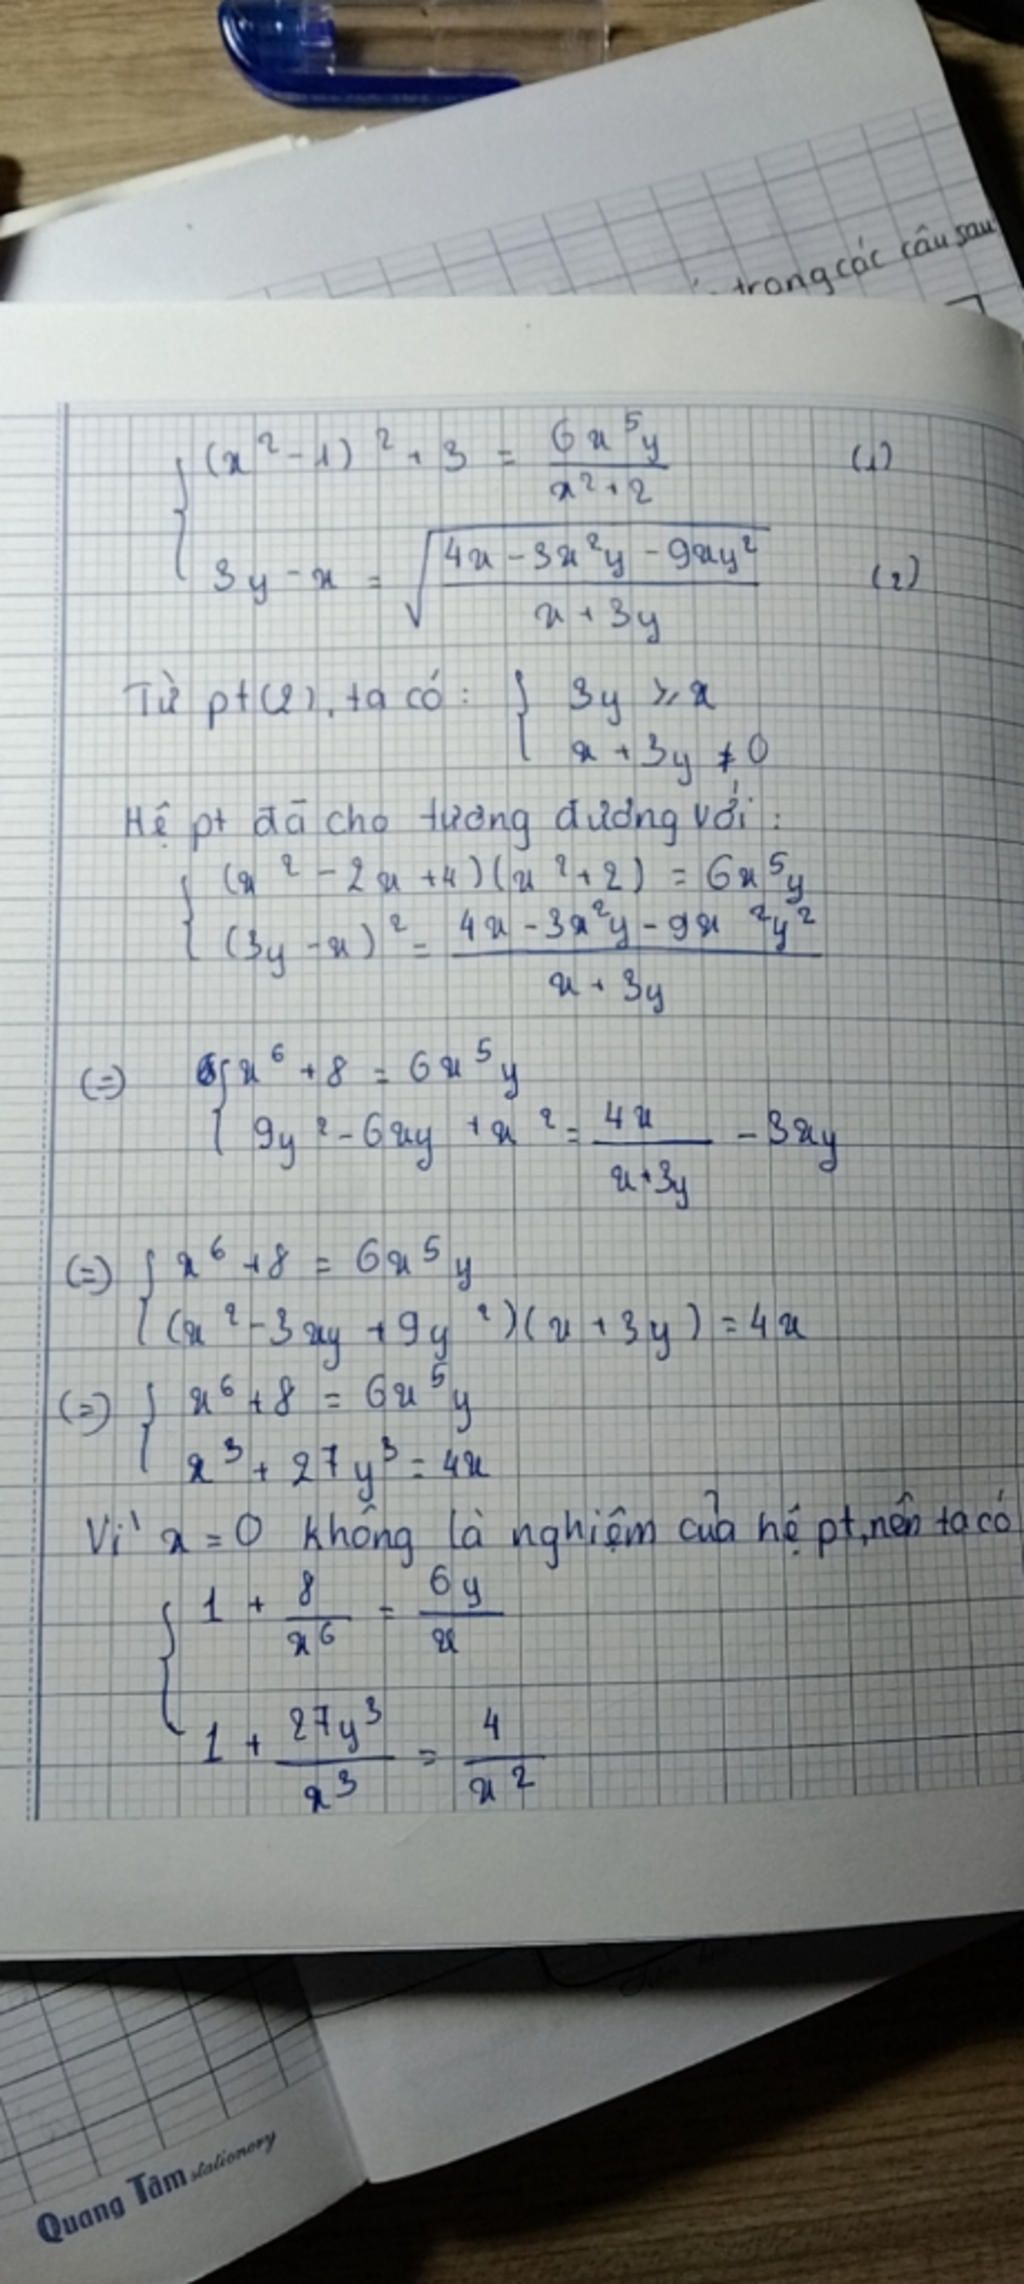 trong các câu sau
{ (x² - 1)² + 3 = 6x⁵y / (x² + 2) (1)
3y - x = √((4x - 3x²y - 9xy²) / (x + 3y)) (2)
Từ pt(2), ta có: { 3y ≥ x
x + 3y ≠ 0
Hệ pt đã cho tương đương với:
{ (x² - 2x + 4)(x² + 2) = 6x⁵y
(3y - x)² = (4x - 3x²y - 9x²y²) / (x + 3y)
(=) { x⁶ + 8 = 6x⁵y
9y² - 6xy + x² = 4x / (x + 3y) - 3xy
(=) { x⁶ + 8 = 6x⁵y
(x² - 3xy + 9y²)(x + 3y) = 4x
(=) { x⁶ + 8 = 6x⁵y
x³ + 27y³ = 4x
Vì x = 0 không là nghiệm của hệ pt, nên ta có
{ 1 + 8/x⁶ = 6y/x
1 + 27y³/x³ = 4/x²
Quang Tâm stationery